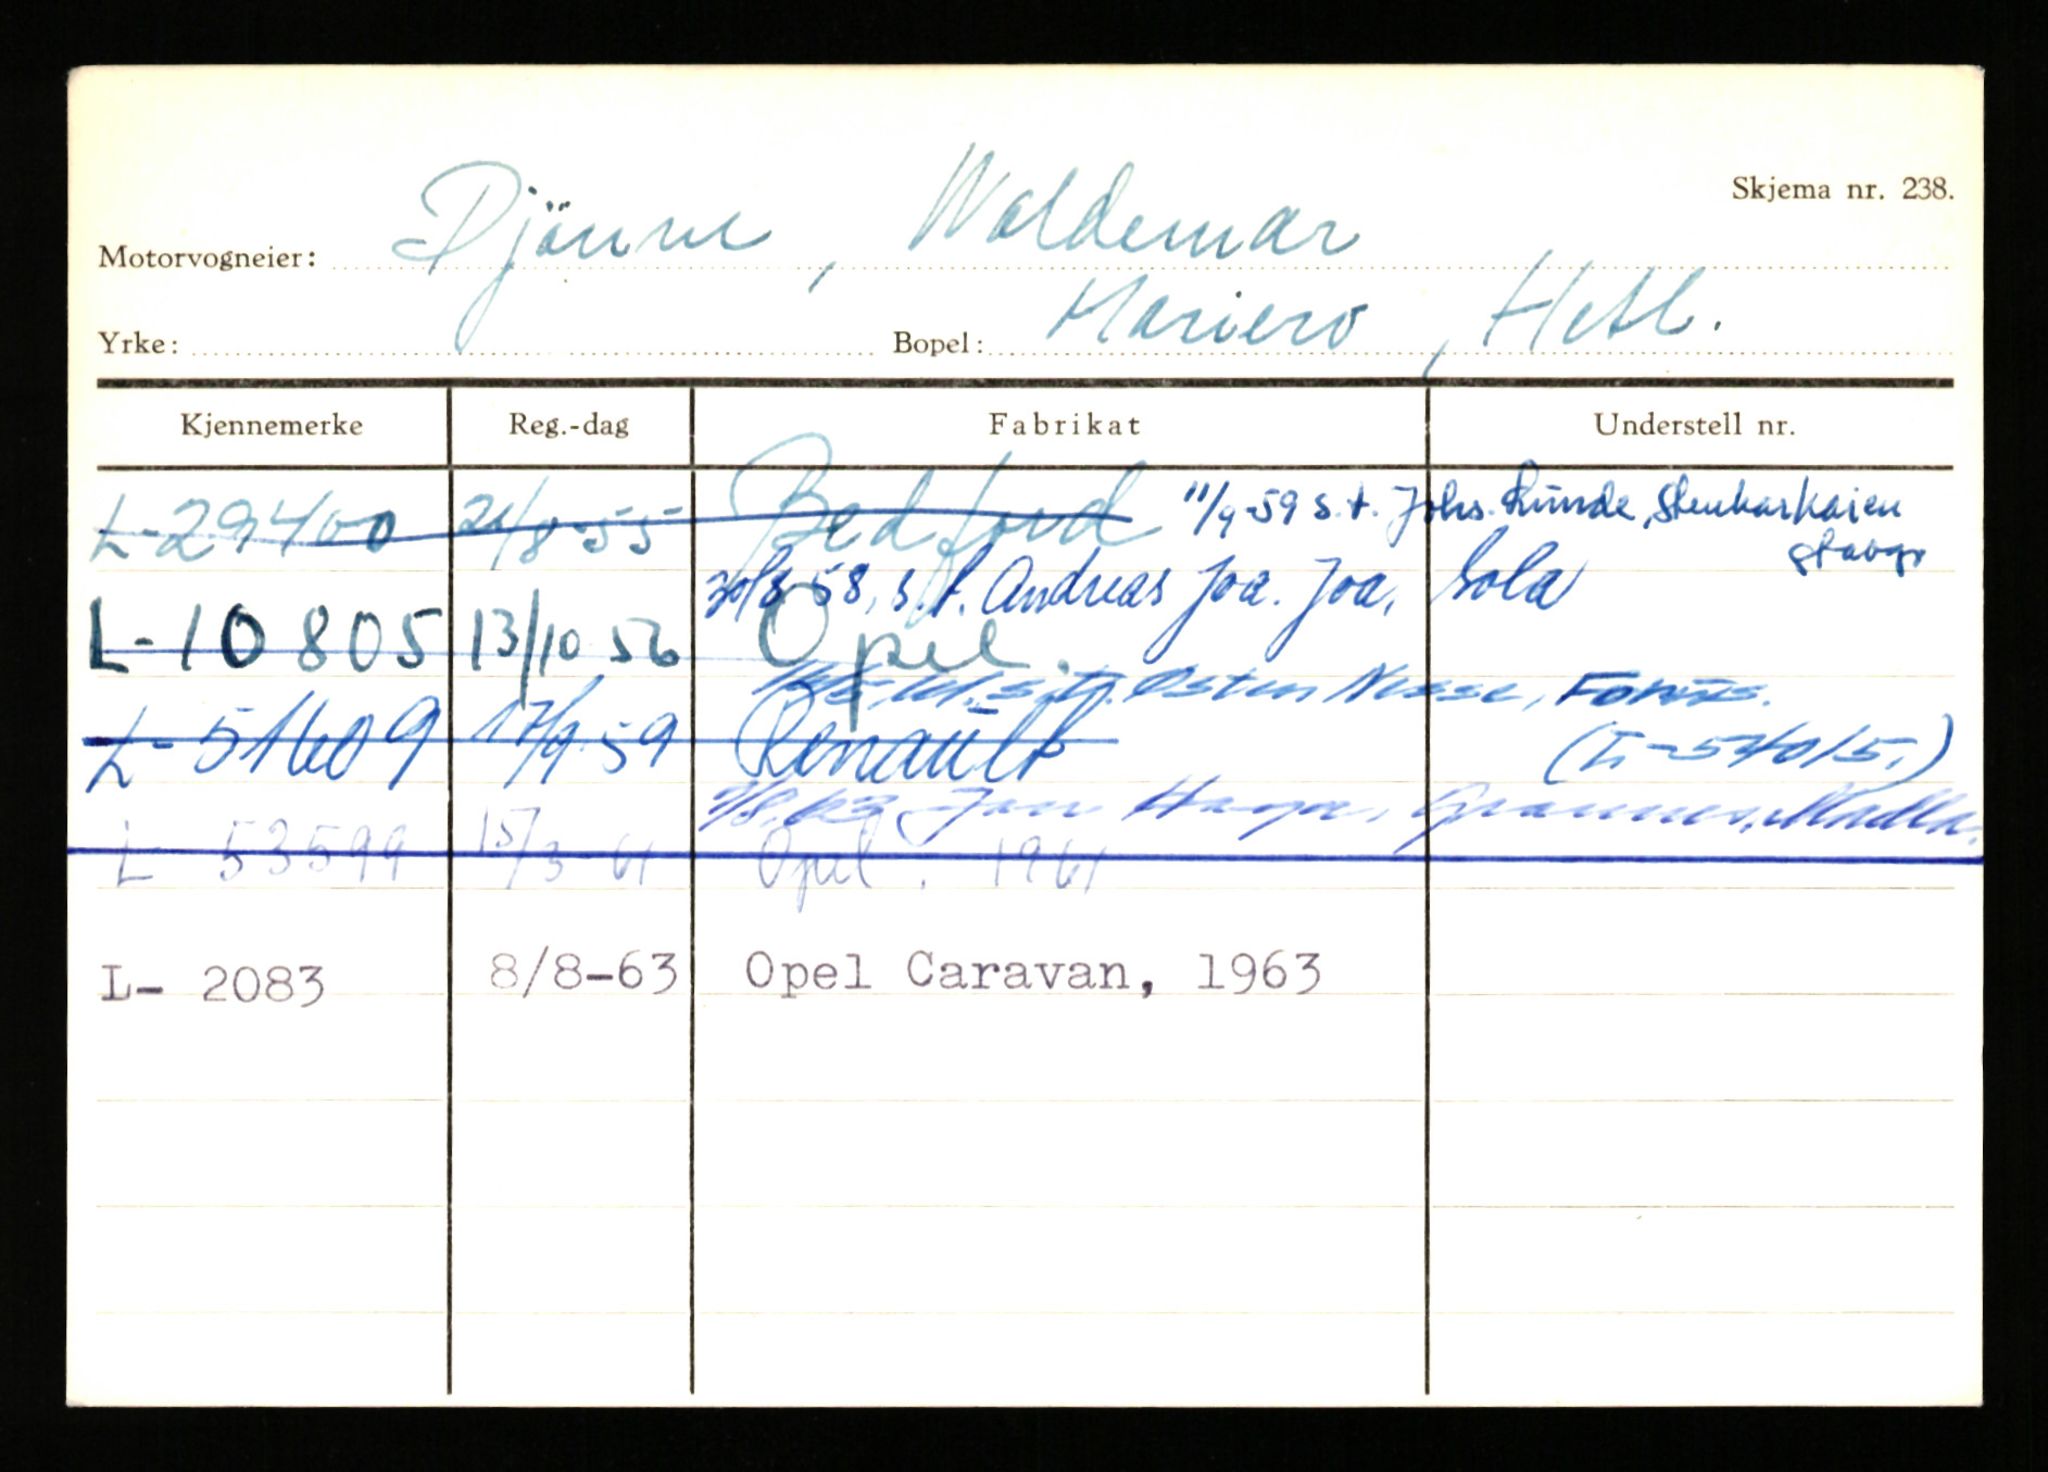 Skjema nr. 238.
Motorvogneier: Djönne, Waldemar
Yrke: Bopel: Mariero, Hetl.
Kjennemerke Reg.-dag Fabrikat Understell nr.
L-29400 21/8-55 Bedford 11/9-59 s.t. Johs. Lunde, Stenkarkaien
Stavgr
30/8-58, s.t. Andreas Joa. Joa, Sola
L-10805 13/10 56 Opel.
s.t. Østen Nesse, Forus.
L-51609 17/9-59 Renault (L-54015.)
/8.63 Jan Haga, Grannes, Madla.
L 53599 15/3-61 Opel. 1961
L- 2083 8/8-63 Opel Caravan, 1963